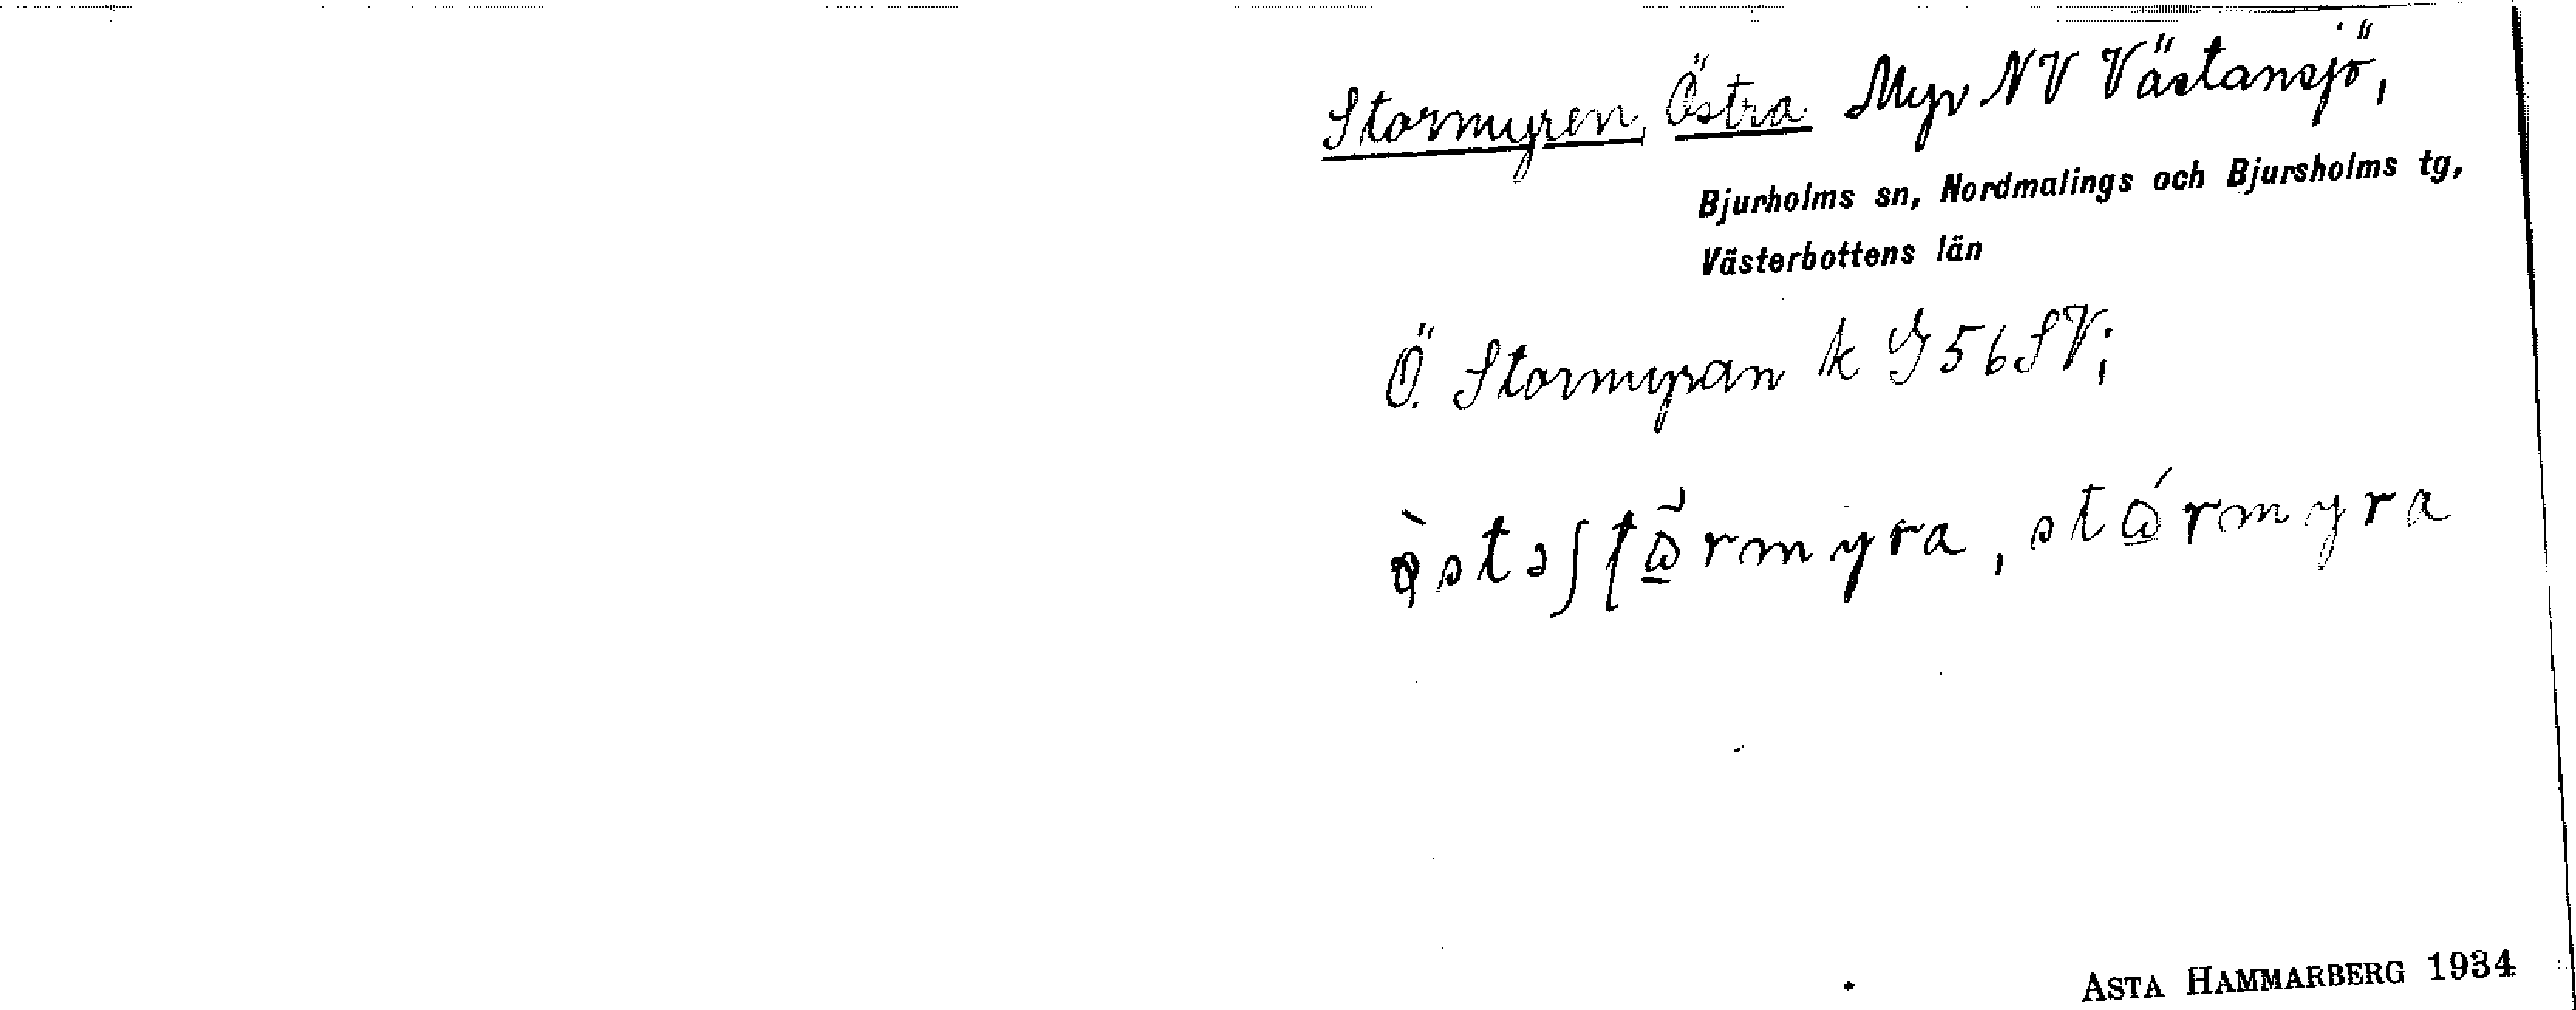 Stormyren, Östra Myr NV Västansjö,
Bjurholms sn, Nordmalings och Bjursholms tg,
Västerbottens län
Ö. Stormyran k G 56 SV;
stårmyra
ASTA HAMMARBERG 1934